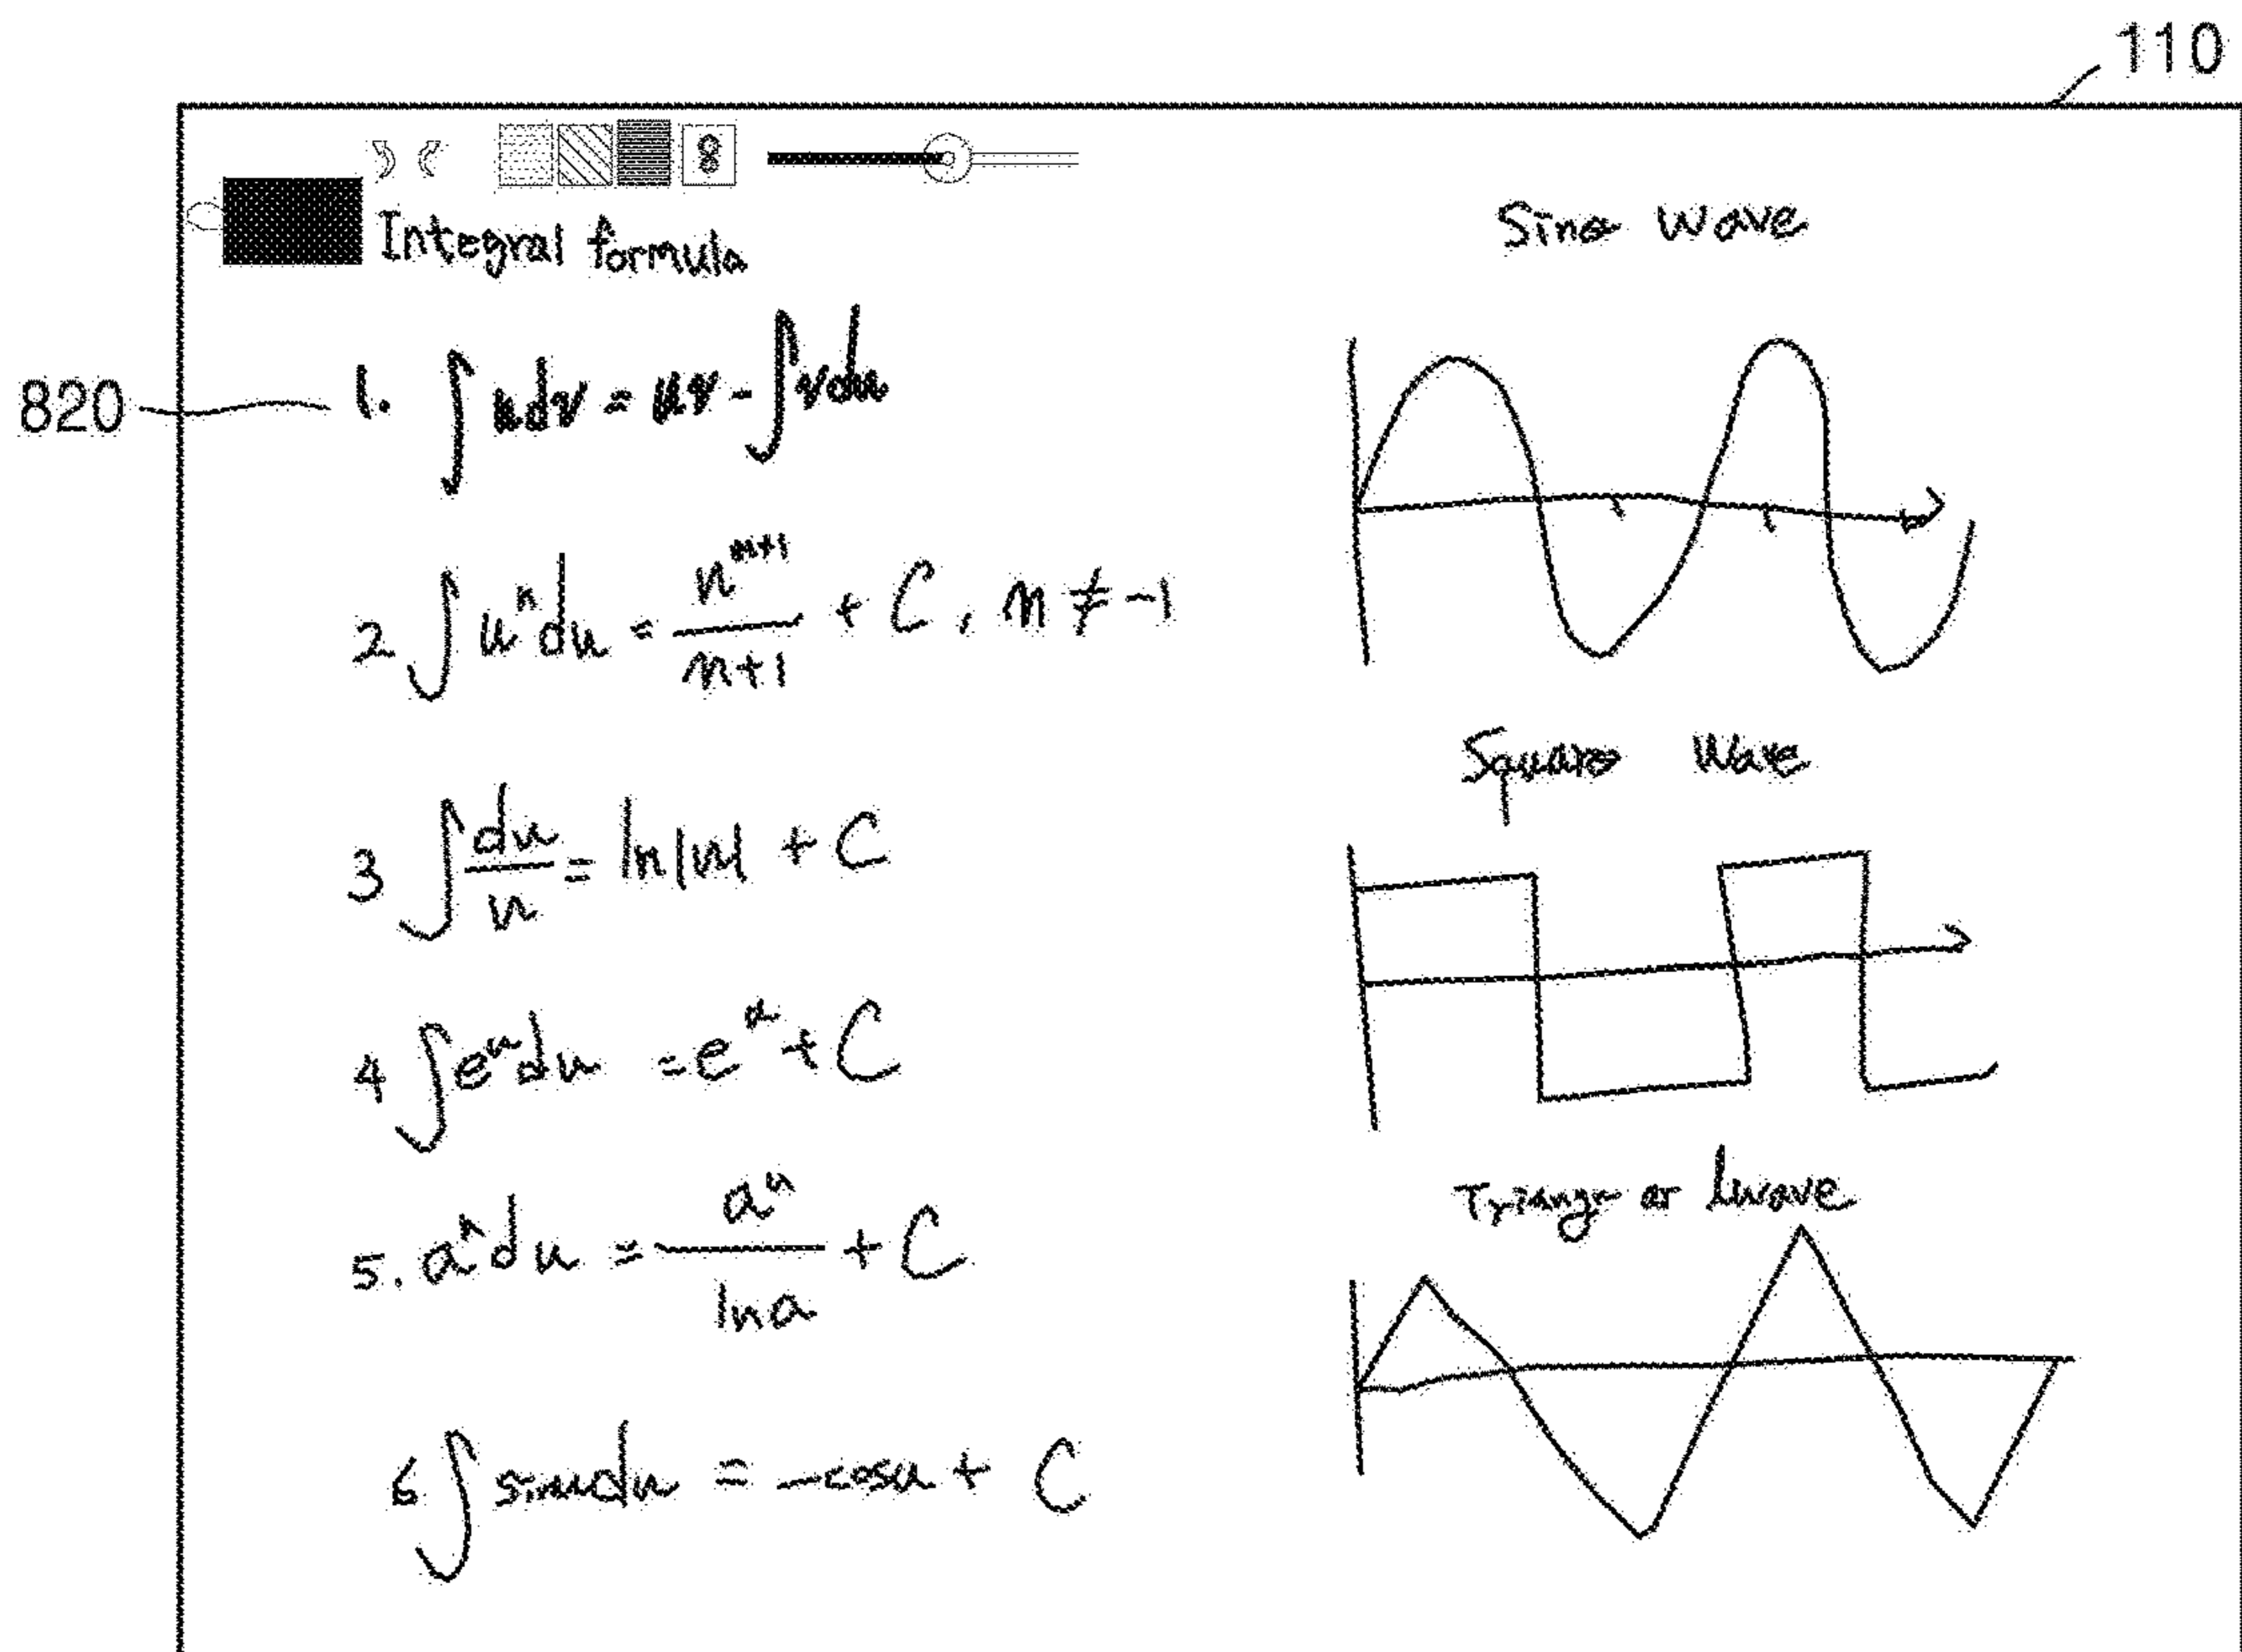 110
Integral formula
820
1. ∫udv = uv - ∫vdu
2 ∫uⁿdu = n^(n+1)/(n+1) + C, n ≠ -1
3 ∫du/u = ln|u| + C
4 ∫e^u du = e^u + C
5. a^n du = a^u/ln a + C
6 ∫sinudu = -cosu + C
Sine wave
Square Wave
or wave